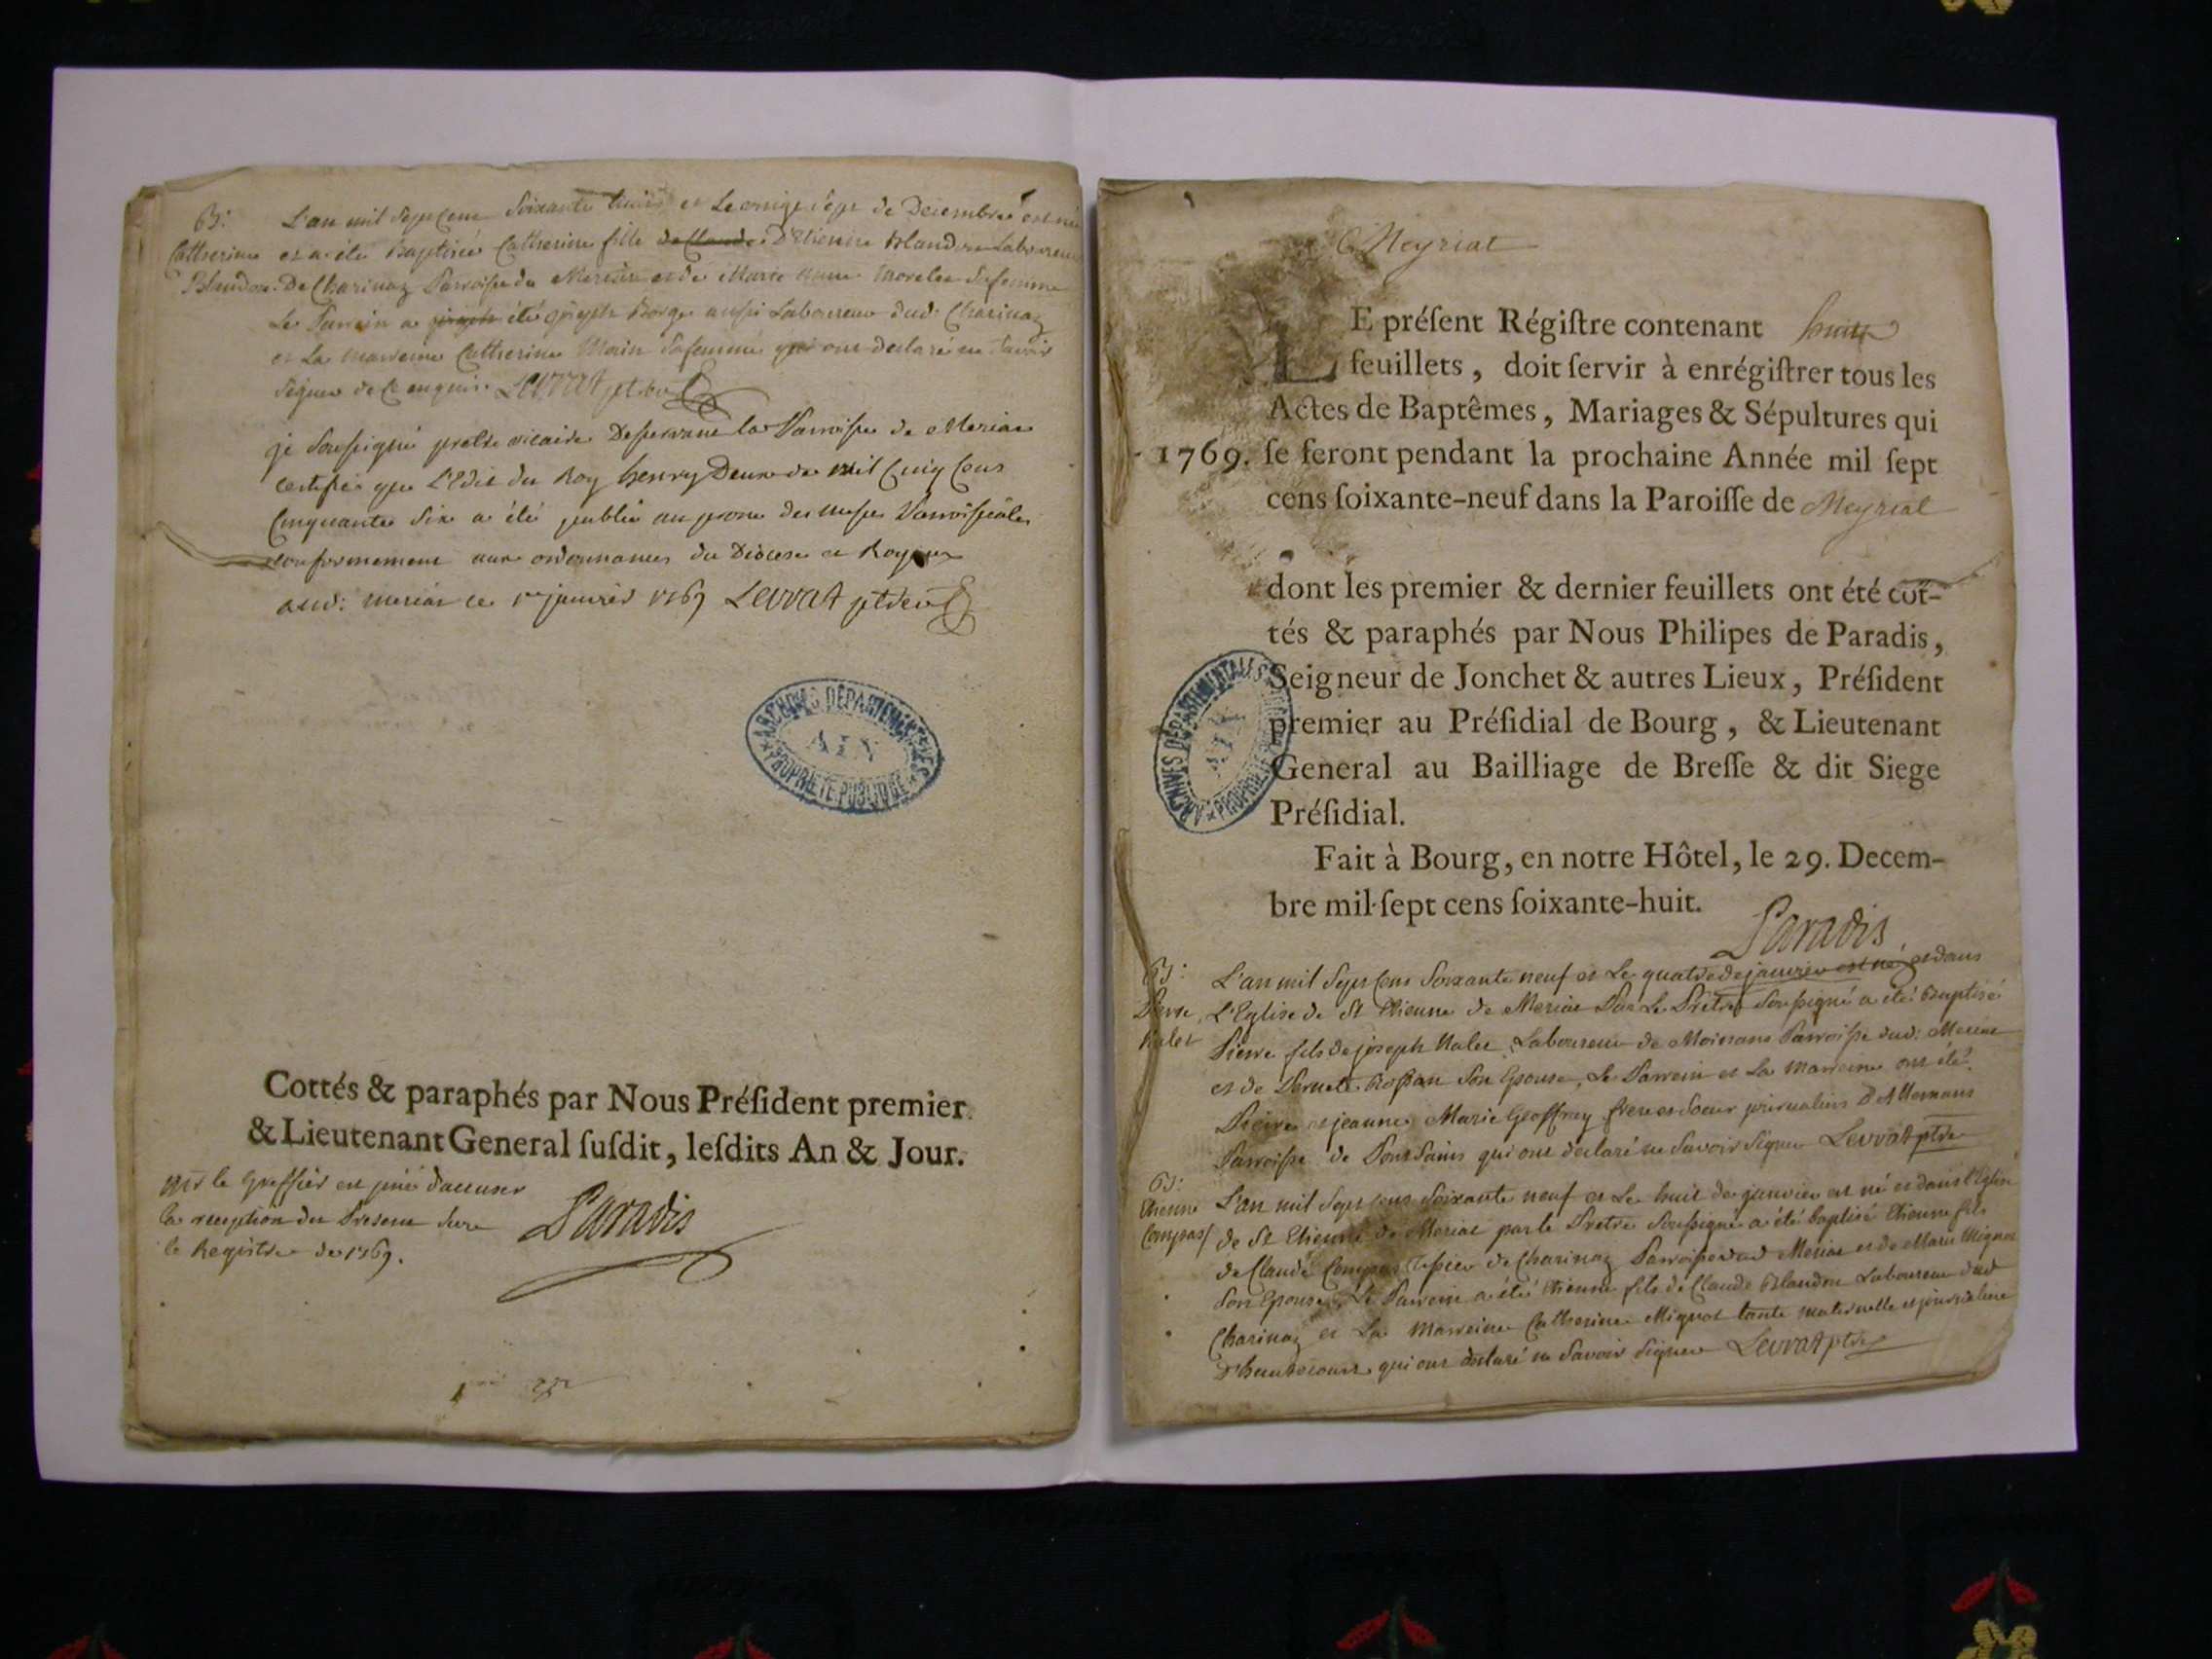 B:
Catherine
Blandon
L'an mil sept cent soixante huit et le vingt sept de Decembre est née
et a été Baptisée Catherine fille de Claude D'Etienne Blandon Laboureur
De Charinaz Parroisse de Meriat et de Marie Anne Morelet sa femme
Le Parrein a été joseph Borge aussi Laboureur dud: Charinaz
et La marreine Catherine Morin sa femme qui ont declaré ne savoir
signer de ce enquis. Levrat
je soussigné pretre vicaire Desservant la Parroisse de Meriat
certifie que L'Edit du Roy henry Deux de mil Cinq Cens
Cinquante Six a été publié au prone des messes Parroissiales
conformement aux ordonnances du Diocese et Royaume
aud: meriat ce 1er janvier 1769 Levrat
ARCHIVES DÉPARTEMENTALES
AIN
PROPRIÉTÉ PUBLIQUE
Cottés & paraphés par Nous Préſident premier
& Lieutenant General ſuſdit, leſdits An & Jour.
Mr le Greffier est prié d'accuser
la reception du Present sur
le Registre de 1769.
Paradis
Meyriat
LE préſent Régiſtre contenant huit
feuillets, doit ſervir à enrégiſtrer tous les
Actes de Baptêmes, Mariages & Sépultures qui
1769. ſe feront pendant la prochaine Année mil ſept
cens ſoixante-neuf dans la Paroiſſe de Meyriat
dont les premier & dernier feuillets ont été cot-
tés & paraphés par Nous Philipes de Paradis,
Seigneur de Jonchet & autres Lieux, Préſident
premier au Préſidial de Bourg, & Lieutenant
General au Bailliage de Breſſe & dit Siege
Préſidial.
ARCHIVES DÉPARTEMENTALES
AIN
PROPRIÉTÉ PUBLIQUE
Fait à Bourg, en notre Hôtel, le 29. Decem-
bre mil ſept cens ſoixante-huit.
Paradis
B:
Pierre
L'an mil Sept Cens Soixante neuf et Le quatre de janvier est né et dans
L'Eglise de St Etienne de Meriat Par Le Pretre Soussigné a été Baptisé
Pierre fils de joseph Laboureur de Moinans Parroisse dud: Meriat
et de Pernete son Epouse, Le Parrein et La Marreine ont été
Pierre et jeanne Marie Geoffray frere et Soeur journaliers D'Allemans
Parroisse de Pont Dains qui ont declaré ne Savoir Signer Levrat ptre
B:
Etienne
Compas
L'an mil Sept cens Soixante neuf et Le huit de janvier est né et dans l'Eglise
de St Etienne de Meriat par le Pretre Soussigné a été baptisé Etienne fils
de Claude Compas Tissier de Charinaz Parroisse dud Meriat et de Marie Mignot
Son Epouse, Le Parrein a été Etienne fils de Claude Blandon Laboureur dud
Charinaz et La Marreine Catherine Mignot tante maternelle et journaliere
D'hautecourt qui ont declaré ne Savoir Signer Levrat ptre